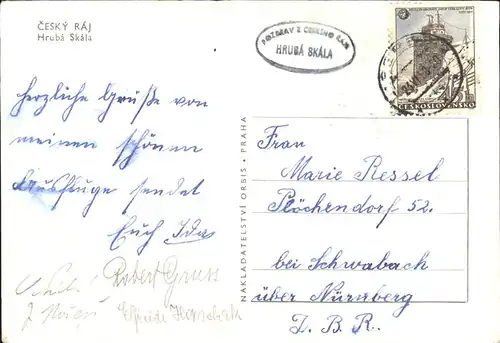 ČESKÝ RÁJ
Hrubá Skála
POZDRAV Z ČESKÉHO RÁJE
HRUBÁ SKÁLA
ČESKOSLOVENSKO
herzliche Grüße von
meinen schönen
Ausfluge sendet
Euch Ida
Robert Gruss
Elfriede
NAKLADATELSTVÍ ORBIS · PRAHA
Frau
Marie Ressel
Plöckendorf 52.
bei Schwabach
über Nürnberg
D. B. R.